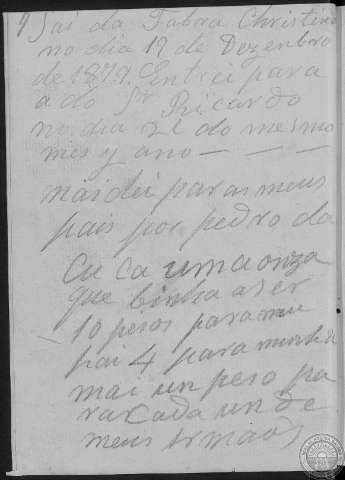 Sai da Fabra Christino
no dia 19 de Dezenbro
de 1879. Entrei para
a do Sr Ricardo
no dia 21 do mesmo
mes y ano — — —
maidei par as meus
pais por pedro da
Cuca uma onza
que binha a ser
10 pesos para miu
pai 4 para minha
mai un peso pa
ra cada un de
meus Irmaos